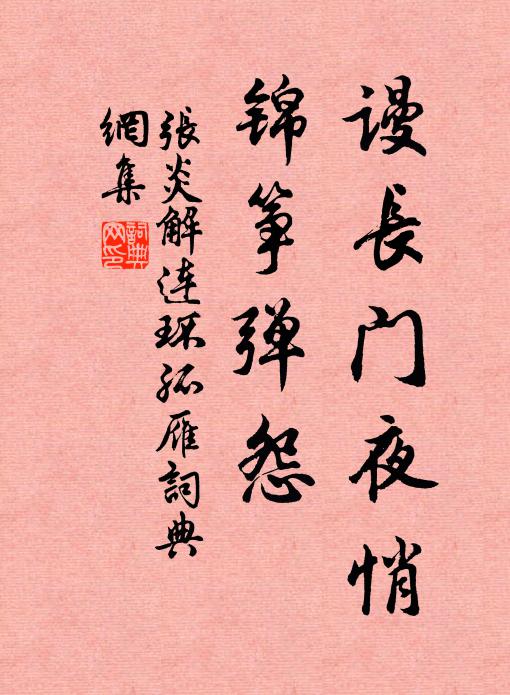 谩長门夜悄
锦筝弹怨
張炎解连环孤雁詞典
網集
詞典
网印